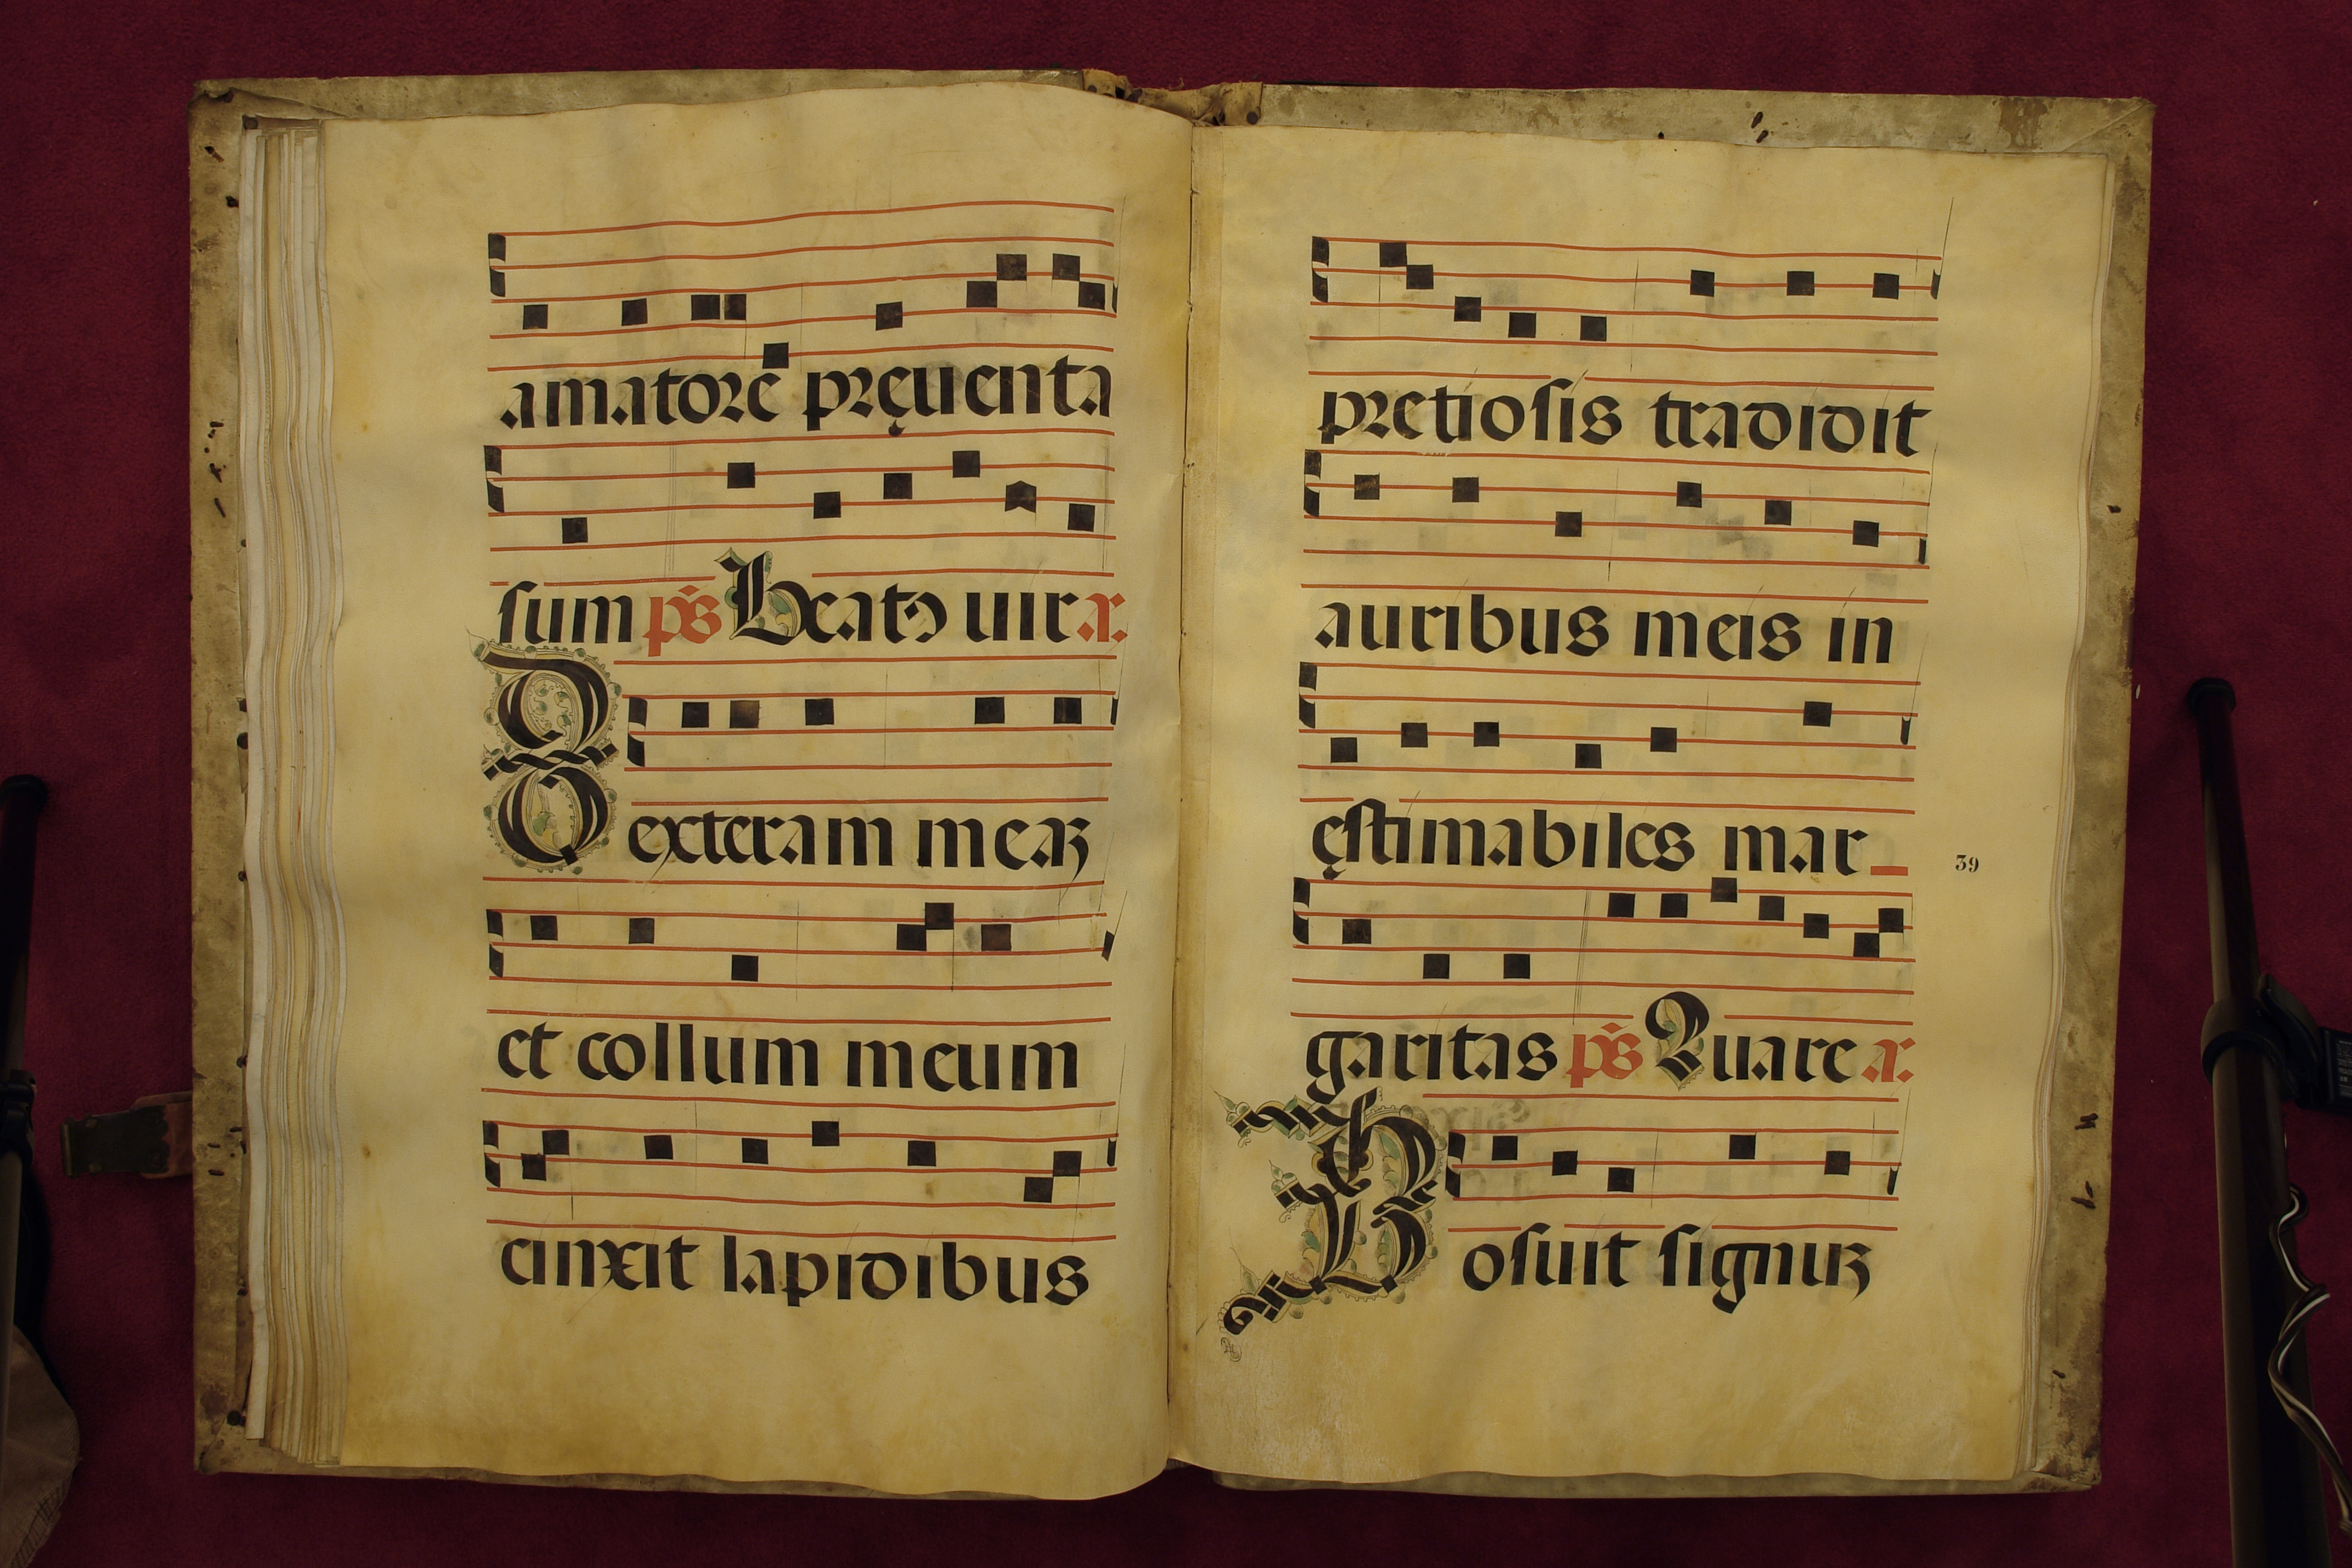 amatorē pręuenta
sum p̄s Beatꝰ uir a.
Dexteram meaz
et collum meum
cinxit lapidibus
pretiosis tradidit
auribus meis in
ęstimabiles mar_
garitas p̄s Quare a.
Posuit signuz
39